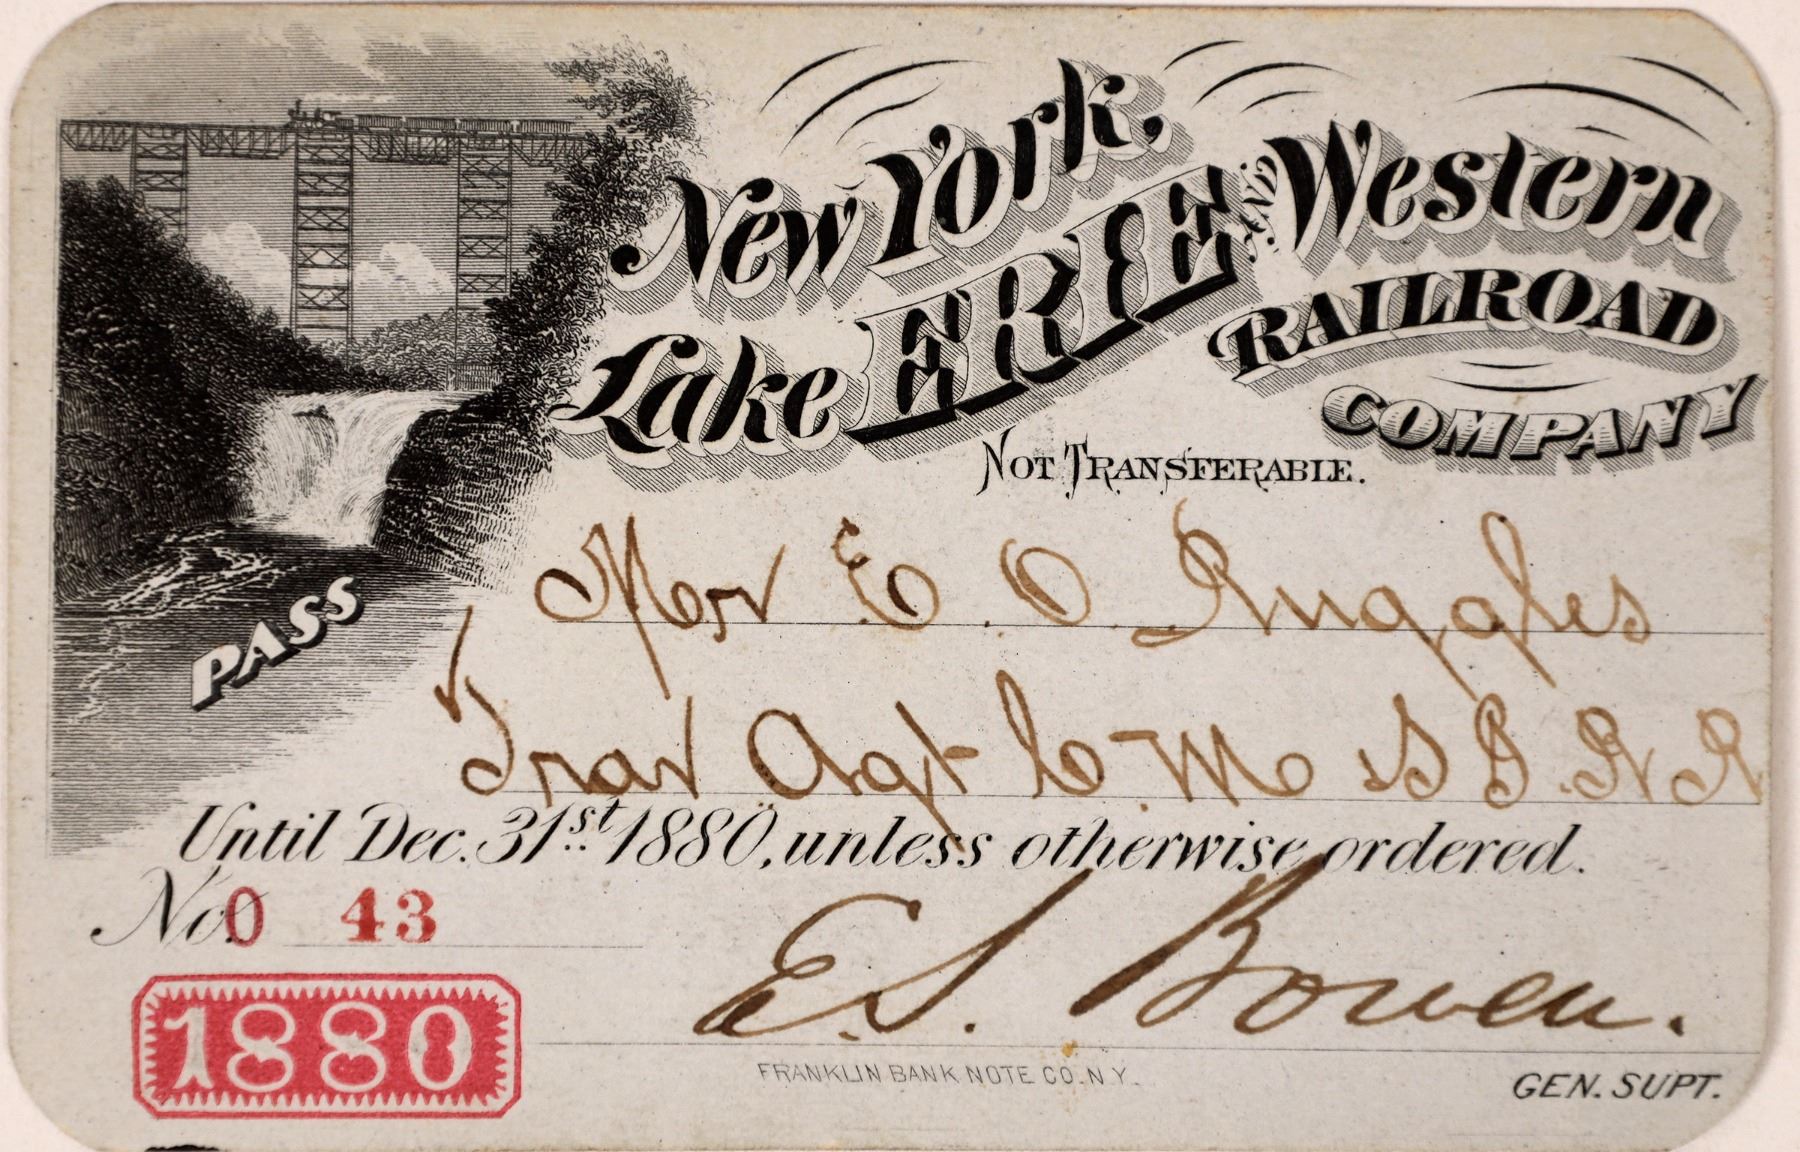 New York,
Lake ERIE AND Western
RAILROAD
COMPANY
NOT TRANSFERABLE.
PASS
Mr E. O. Ruggles
Trav Agt C. M & St P. R R
Until Dec. 31st 1880, unless otherwise ordered.
No. 0 43
1880
E. S. Bowen.
FRANKLIN BANK NOTE CO. N.Y.
GEN. SUPT.